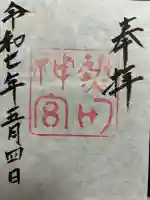 奉拝
神宮
令和七年五月四日